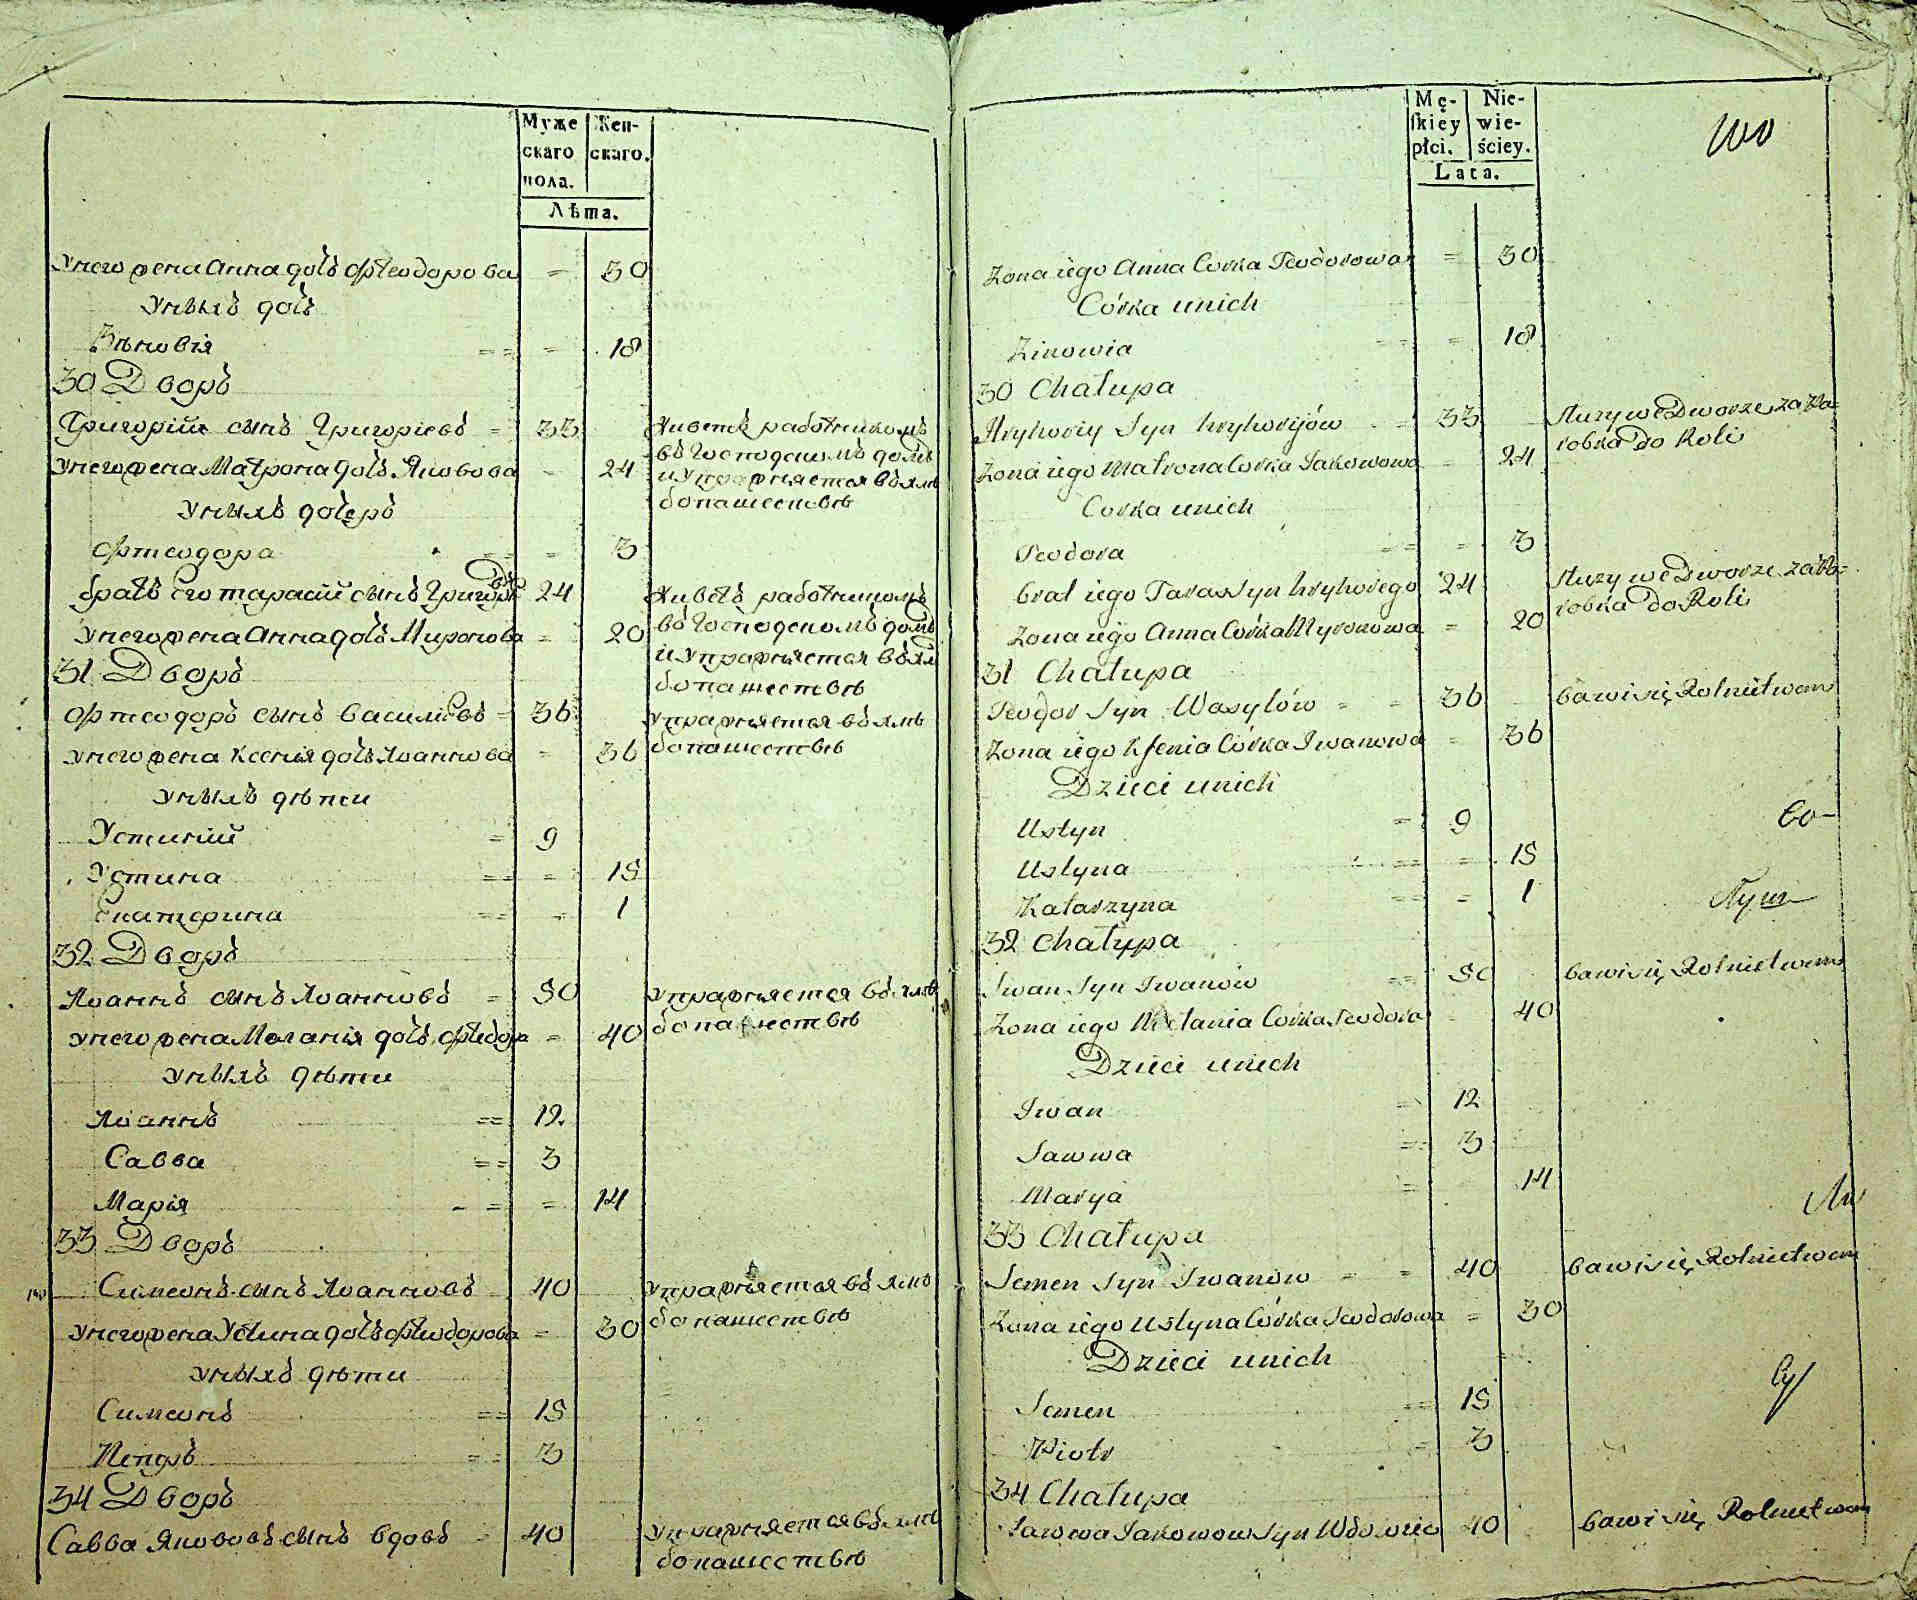 Муже скаго пола.
Жен- скаго.
Лѣта.
У него жена Анна дочь Фтеодорова = 30
У нихъ дочь
Зѣновія = = = 18
30 Дворъ
Григорій сынъ Григоріевъ = 33
Живетъ работникомъ
въ Господскомъ домѣ
и упражняется въ хлѣ
бопашествѣ
У него жена Матрона дочь Яковова = 24
У нихъ дочерь
Фтеодора = = = 3
братъ его Тарасій сынъ Григорьевъ 24
Живетъ работникомъ
въ Господскомъ домѣ
и упражняется въ хлѣ
бопашествѣ
У него жена Анна дочь Миронова = 20
31 Дворъ
Фтеодоръ сынъ Василіевъ = 36
упражняется въ хлѣ
бопашествѣ
У него жена Ксенія дочь Іоаннова = 36
У нихъ дѣти
Устиній = 9
Устина = = = 15
Екатерина = = = 1
32 Дворъ
Іоаннъ сынъ Іоанновъ = 50
упражняется въ хлѣ
бопашествѣ
У него жена Меланія дочь Фтедора = 40
У нихъ дѣти
Іоаннъ == 12
Савва == 3
Марія = = = 14
33 Дворъ
Симеонъ сынъ Іоанновъ 40
упражняется въ хлѣ
бопашествѣ
У него жена Устина дочь Фтеодорова = 30
У нихъ дѣти
Симеонъ == 15
Петръ == 3
34 Дворъ
Савва Якововъ сынъ вдовъ = 40
упражняется въ хлѣ
бопашествѣ
Mę- skiey płci.
Nie- wie- ściey.
Lata.
Zona iego Anna Corka Teodorowa = 30
Córka unich
Zinowia = = 18
30 Chałupa
Hryhoriy Syn hryhorijów = 33
służy we Dworze za Pa-
robka do Roli
Zona iego Matrona Corka Jakowowa = 24
Corka unich
Teodora == = 3
brat iego Taras Syn hryhorego 24
służy we Dworze za Pa-
robka do Roli
Zona iego Anna Córka Myronowa = 20
31 Chałupa
Teodor Syn Wasylów = = 36
bawi się Rolnictwem
Zona iego Ksenia Córka Iwanowa = 36
Dzieci unich
Ustyn = 9
Ustyna == = 15
Katarzyna == = 1
32 Chałupa
Iwan Syn Iwanów == 50
bawi się Rolnictwem
Zona iego Melania Córka Teodora 40
Dzieci unich
Iwan = 12
Sawwa == 3
Marya = 14
33 Chałupa
Semen Syn Iwanów = = 40
bawi się Rolnictwem
Zona iego Ustyna Córka Teodorowa = 30
Dzieci unich
Semen == 15
Piotr = 3
34 Chałupa
Sawwa Jakowow Syn Wdowiec 40
bawi się Rolnictwem